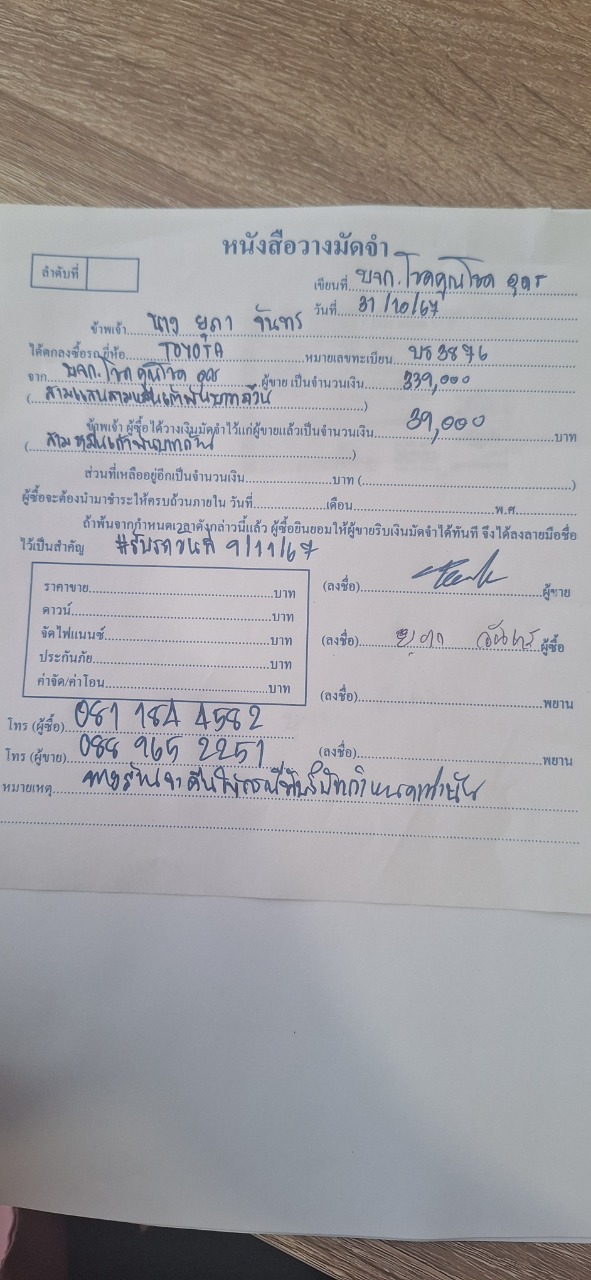 หนังสือวางมัดจำ
ลำดับที่
เขียนที่ บจก. โชคคูณโชค อุดร
วันที่ 31/10/67
ข้าพเจ้า นาง ยุภา จันทร
ได้ตกลงซื้อรถยี่ห้อ TOYOTA หมายเลขทะเบียน บร 3876
จาก บจก. โชคคูณโชค อุดร ผู้ขาย เป็นจำนวนเงิน 339,000
(สามแสนสามหมื่นเก้าพันบาทถ้วน)
ข้าพเจ้า ผู้ซื้อได้วางเงินมัดจำไว้แก่ผู้ขายแล้วเป็นจำนวนเงิน 39,000 บาท
(สามหมื่นเก้าพันบาทถ้วน)
ส่วนที่เหลืออยู่อีกเป็นจำนวนเงิน บาท ( )
ผู้ซื้อจะต้องนำมาชำระให้ครบถ้วนภายใน วันที่ เดือน พ.ศ.
ถ้าพ้นจากกำหนดเวลาดังกล่าวนี้แล้ว ผู้ซื้อยินยอมให้ผู้ขายริบเงินมัดจำได้ทันที จึงได้ลงลายมือชื่อ
ไว้เป็นสำคัญ #รับรถวันที่ 9/11/67
ราคาขาย บาท
(ลงชื่อ) ผู้ขาย
ดาวน์ บาท
จัดไฟแนนซ์ บาท
(ลงชื่อ) ยุภา จันทร ผู้ซื้อ
ประกันภัย บาท
ค่าจัด/ค่าโอน บาท
(ลงชื่อ) พยาน
โทร (ผู้ซื้อ) 081 184 4582
โทร (ผู้ขาย) 088 965 2251
(ลงชื่อ) พยาน
หมายเหตุ ทางร้านจะคืนให้กรณีที่บริษัทกำหนดเท่านั้น